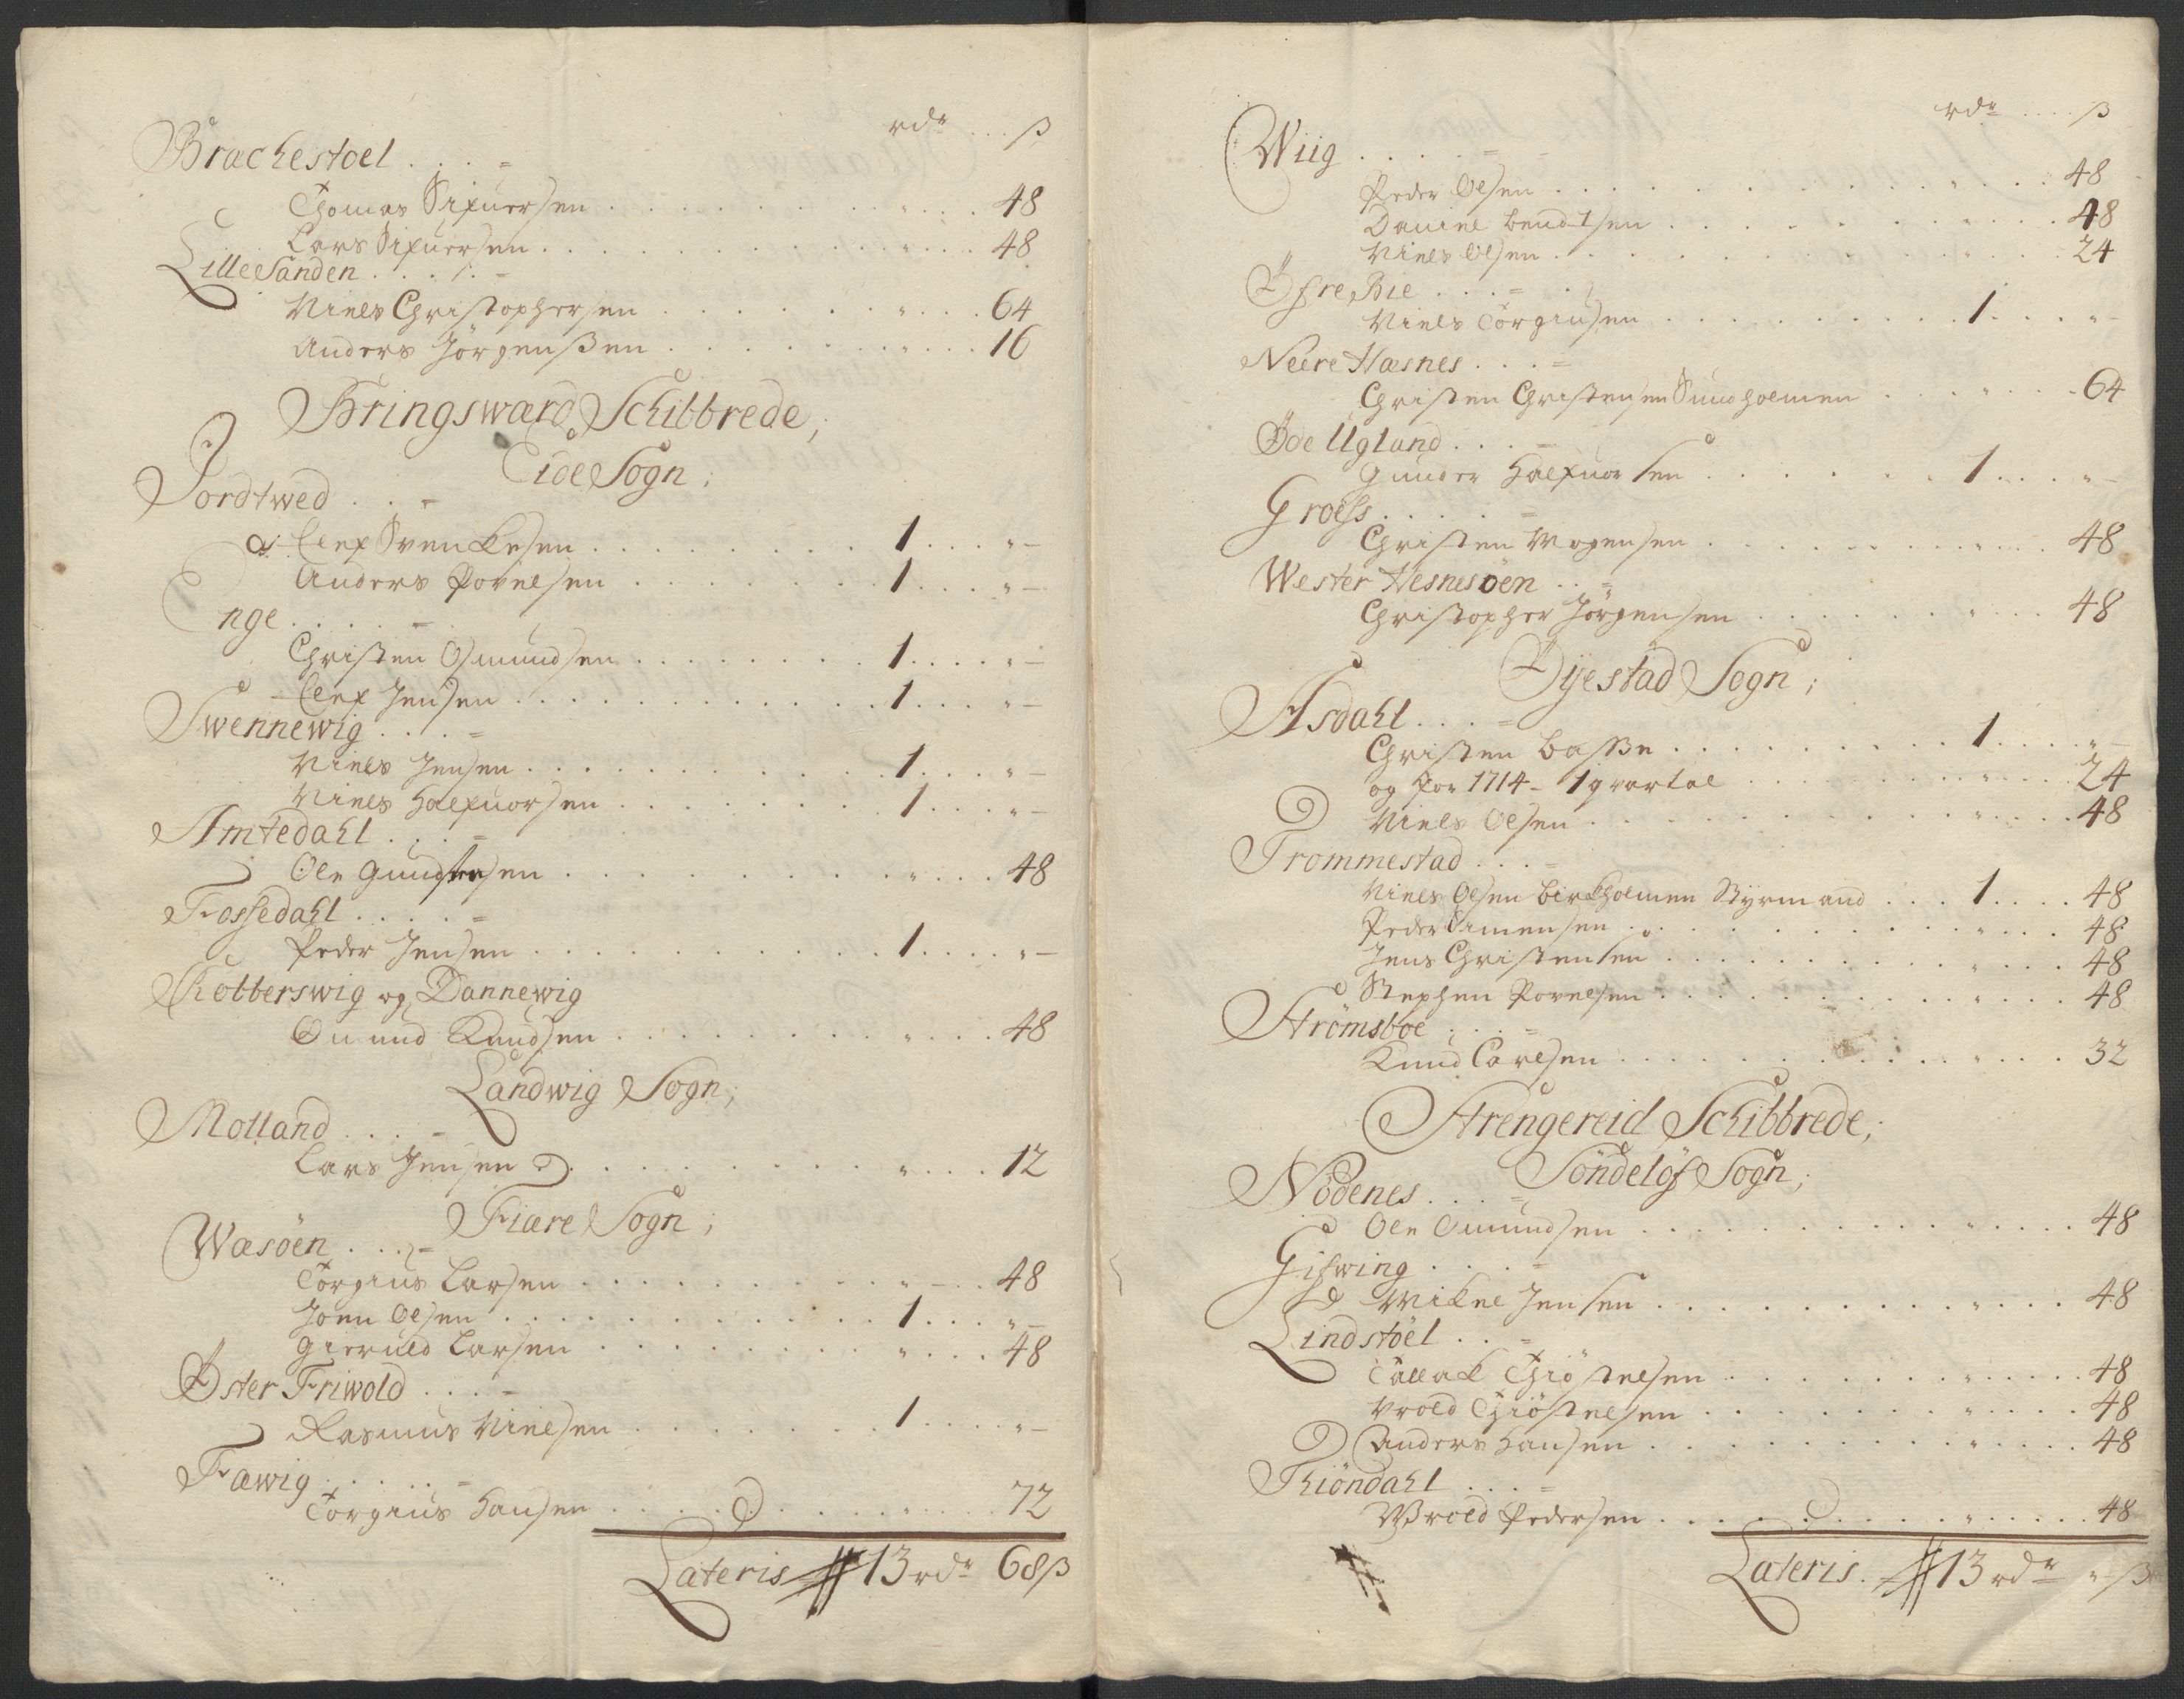 rdr ... ß
Brachestoel . . . =
Thomas Sifuersen . . . " . . . 48
Lars Sifuersen . . . " . . . 48
Lillesanden . . . =
Niels Christophersen . . . " . . . 64
Anders Jörgenßen . . . " . . . 16
Bringsværd Schibbrede;
Eide Sogn;
Jordtwed . . . =
Olef Svenkesen . . . 1 . . . " –
Anders Povelsen . . . 1 . . . " –
Enge . . . =
Christen Osmundsen . . . 1 . . . " –
Olef Jensen . . . 1 . . . " –
Swennewig . . . =
Niels Jensen . . . 1 . . . " –
Niels Halfuorsen . . . 1 . . . " –
Amtedahl . . . =
Ole Gundersen . . . " . . . 48
Fossedahl . . . =
Peder Jensen . . . 1 . . . " –
Kobberswig og Dannewig
Omund Knudsen . . . " . . . 48
Landwig Sogn;
Molland . . . =
Lars Jensen . . . " . . . 12
Fiære Sogn;
Wæsöen . . . =
Torgius Larsen . . . " . . . 48
Joen Olsen . . . 1 . . . " –
Gieruld Larsen . . . " . . . 48
Öster Friwold . . . =
Rasmus Nielsen . . . 1 . . . " –
Fæwig . . . =
Torgius Hansen . . . " . . . 72
Lateris 13 rdr 68 ß
rdr ... ß
Wiig . . . =
Peder Olsen . . . " . . . 48
Daniel Bendtsen . . . " . . . 48
Niels Olsen . . . " . . . 24
Öfre Bie . . . =
Niels Torgiusen . . . 1 . . . " –
Neere Hæsnes . . . =
Christen Christensen Sundholmen . . . " . . . 64
Öde Ugland . . . =
Gunder Halfuorsen . . . 1 . . . " –
Groess . . . =
Christen Mogensen . . . " . . . 48
Wester Hesnesöen . . =
Christopher Jörgensen . . . " . . . 48
Öyestad Sogn;
Asdahl . . . =
Christen Baßse . . . 1 . . . " –
og for 1714 – 1 qvartal . . . " . . . 24
Niels Olsen . . . " . . . 48
Trommestad . . . =
Niels Olsen Birkholmen Styrmand . . . 1 . . . 48
Peder Simensen . . . " . . . 48
Jens Christensen . . . " . . . 48
Stephen Povelsen . . . " . . . 48
Strömsboe . . . =
Knud Carlsen . . . " . . . 32
Strengereid Schibbrede;
Söndelöf Sogn;
Nödenes . . . =
Ole Omundsen . . . " . . . 48
Gifwing . . . =
Mikel Jensen . . . " . . . 48
Lindstöel . . =
Tallak Thiöstelsen . . . " . . . 48
Vrold Thiöstelsen . . . " . . . 48
Anders Hansen . . . " . . . 48
Thiöndahl . . . =
Wrold Pedersen . . . " . . . 48
Lateris. 13 rdr " ß